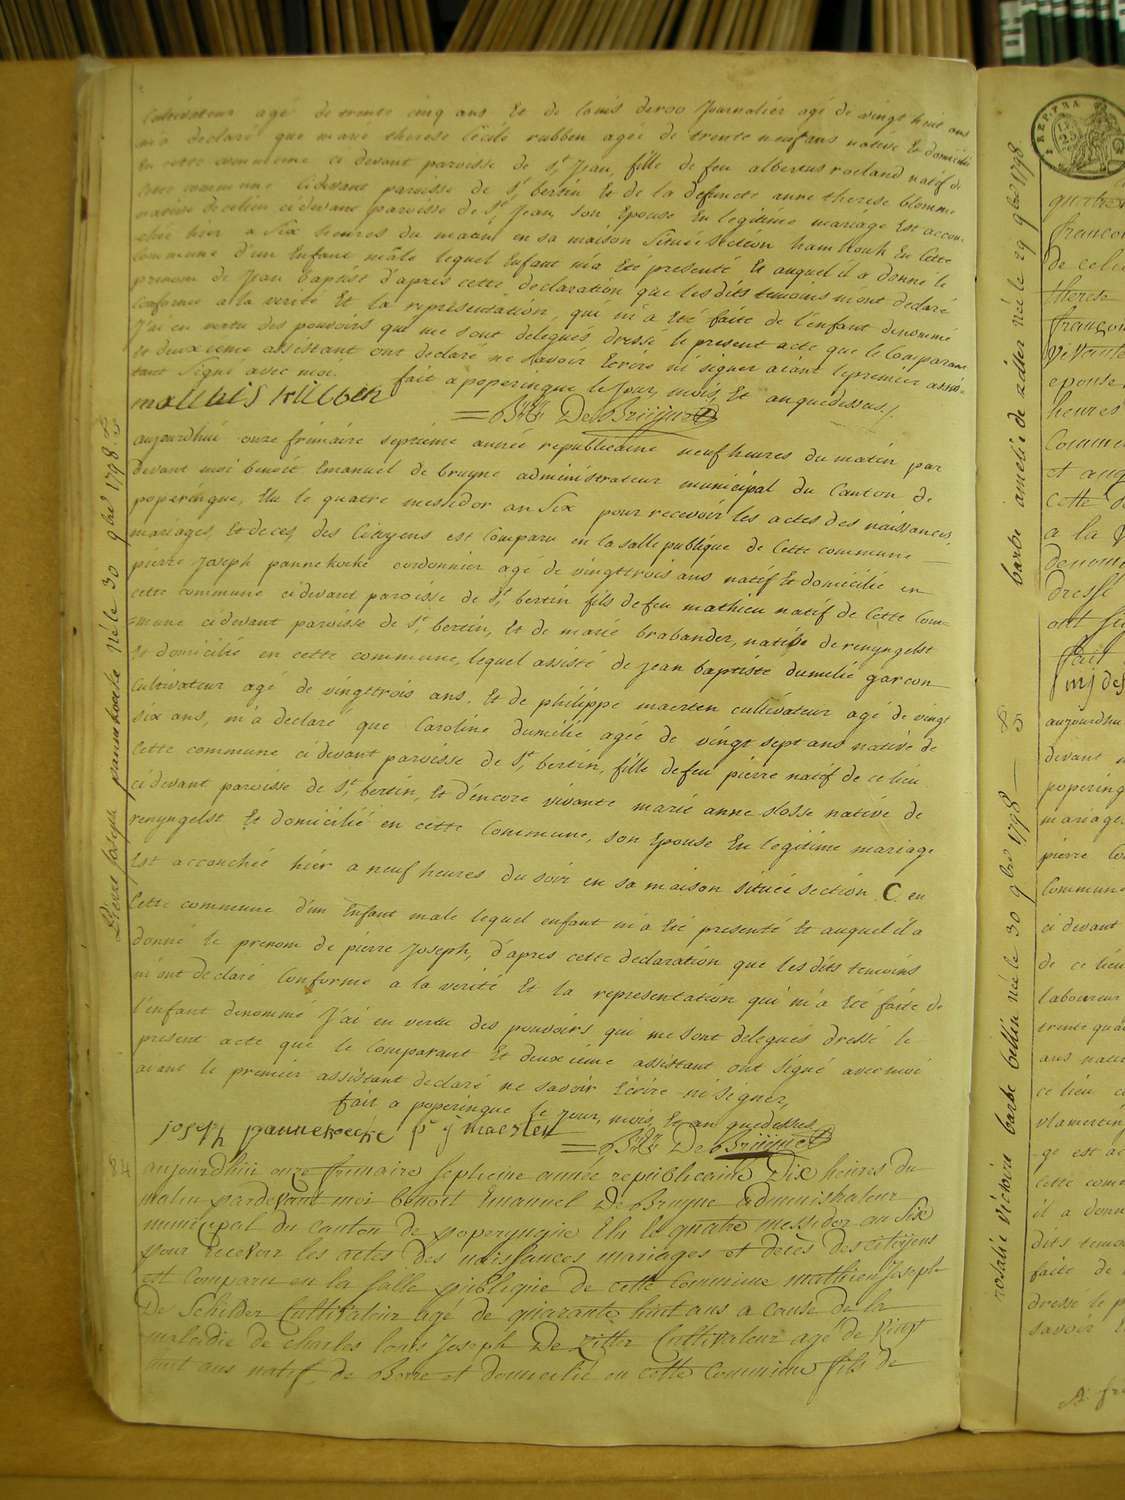 Cultivateur agé de trente cinq ans Et de louis deroo Journalier agé de vingt huit ans
m'a declaré que marie therese Cecile rubben agée de trente neuf ans native Et domiciliée
En cette commune ci devant paroisse de St Jean, fille de feu albertus roeland natif de
Cette commune ci devant paroisse de St bertin Et de la defuncte anne therese blomme
native de celieu ci devant paroisse de St Jean, son Epouse En legitime mariage Est accou-
chée hier a Six heures du matin en sa maison située section hamhouk En Cette
Commune d'un Enfant mâle lequel Enfant m'a Eté presenté Et auquel il a donné le
prenom de Jean Baptist d'apres cette declaration que les dits temoins m'ont declaré
Conforme a la verité Et la representation, qui m'a Eté faite de l'enfant denommé
J'ai en vertu des pouvoirs qui me sont delegués dressé le present acte que le Comparant
Et deuxieme assistant ont declaré ne savoir Ecrire ni signer aiant le premier assis-
tant Signé avec moi. fait a poperingue le Jour, mois, Et an quedessus /.
mattheis rubben
De Bruijne
Pierre Joseph pannekoeke né le 30 9bre 1798.
aujourdhui onze frimaire septieme année republicaine neuf heures du matin par
devant moi benoit Emanuel de bruyne administrateur municipal du Canton de
poperingue, Elu le quatre messidor an Six pour recevoir les actes des naissances,
mariages, Et deces, des Citoyens est Comparu en la salle publique de Cette commune
pierre Joseph pannekoeke cordonnier agé de vingttrois ans natif Et domicilié en
cette commune ci devant paroisse de St bertin fils de feu mathieu natif de Cette Com-
mune ci devant paroisse de St bertin, Et de marie brabander, native de renyngelst
Et domicilié en cette commune, lequel assisté de jean baptiste dumilié garcon
Cultivateur agé de vingttrois ans, Et de philippe maerten cultivateur agé de vingt
six ans, m'a declaré que Caroline dumilié agée de vingt sept ans native de
Cette commune ci devant paroisse de St bertin, fille de feu pierre natif de ce lieu
ci devant paroisse de St bertin, Et d'encore vivante marie anne slosse native de
renyngelst Et domicilié en cette Commune, son Epouse En legitime mariage
Est accouchée hier a neuf heures du soir en sa maison située section C en
Cette commune d'un Enfant male lequel enfant m'a Eté presenté Et auquel il a
donné le prenom de pierre Joseph, d'apres cette declaration que les dits temoins
m'ont declaré Conforme a la verité Et la representation qui m'a Eté faite de
l'enfant denommé J'ai en vertu des pouvoirs qui me sont delegués dressé le
present acte que le Comparant Et deuxieme assistant ont signé avec moi
aiant le premier assistant declaré ne savoir Ecrire ni signer,
fait a poperingue le jour, mois, Et an quedessus
joseph pannekoecke p j maerten
De Bruijne
84
aujourdhui onze frimaire septieme année republicaine Dix heures du
matin pardevant moi benoit Emanuel De Bruyne administrateur
municipal du canton de poperyngue Elu le quatre messidor an Six
pour recevoir les actes des naissances mariages et decès des citoyens
est Comparu en la salle publique de cette commune mathieu Joseph
De Schilder Cultivateur agé de quarante huit ans a cause de la
maladie de charles louis Joseph De Zitter Cultivateur agé de vingt
huit ans natif de Borre et domicilié en cette commune fils de
barbe amelie de zitter née le 29 9bre 1798
rosalie victoire barbe bellin née le 30 9bre 1798
REP. FRA
quatre
francoi
de celu
therese
francoi
vivante
epouse
heures
Commu
et auq
cette d
a la v
denomm
dressé
ont si
fait
mj des
aujourdhu
devant
poperin
mariage
pierre
Commune
ci devant
de ce lieu
laboureur
trente qua
ans nati
ce lieu
vlamertin
ge est ac
cette com
il a donn
dits temoi
faite de
dressé le p
savoir E